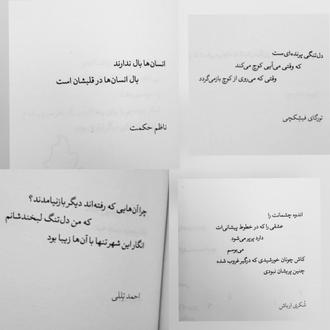 انسان‌ها بال ندارند
بال انسان‌ها در قلبشان است
ناظم حکمت
دل‌تنگی پرنده‌ای‌ست
که وقتی می‌آیی کوچ می‌کند
وقتی که می‌روی از کوچ بازمی‌گردد
تورگای فیشکچی
چرا آن‌هایی که رفته‌اند دیگر بازنیامدند؟
که من دل‌تنگ لبخندشانم
انگار این شهر تنها با آن‌ها زیبا بود
احمد تللی
اندوه چشمانت را
عشقی را که در خطوط پیشانی‌ات
دارد پرپر می‌شود
می‌بوسم
کاش چونان خورشیدی که درگیر غروب شده
چنین پریشان نبودی
شکری ارباش